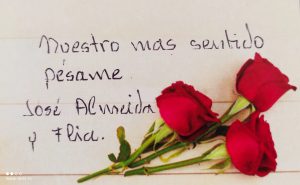 Nuestro mas sentido
pésame.
José Almeida
y Flia.